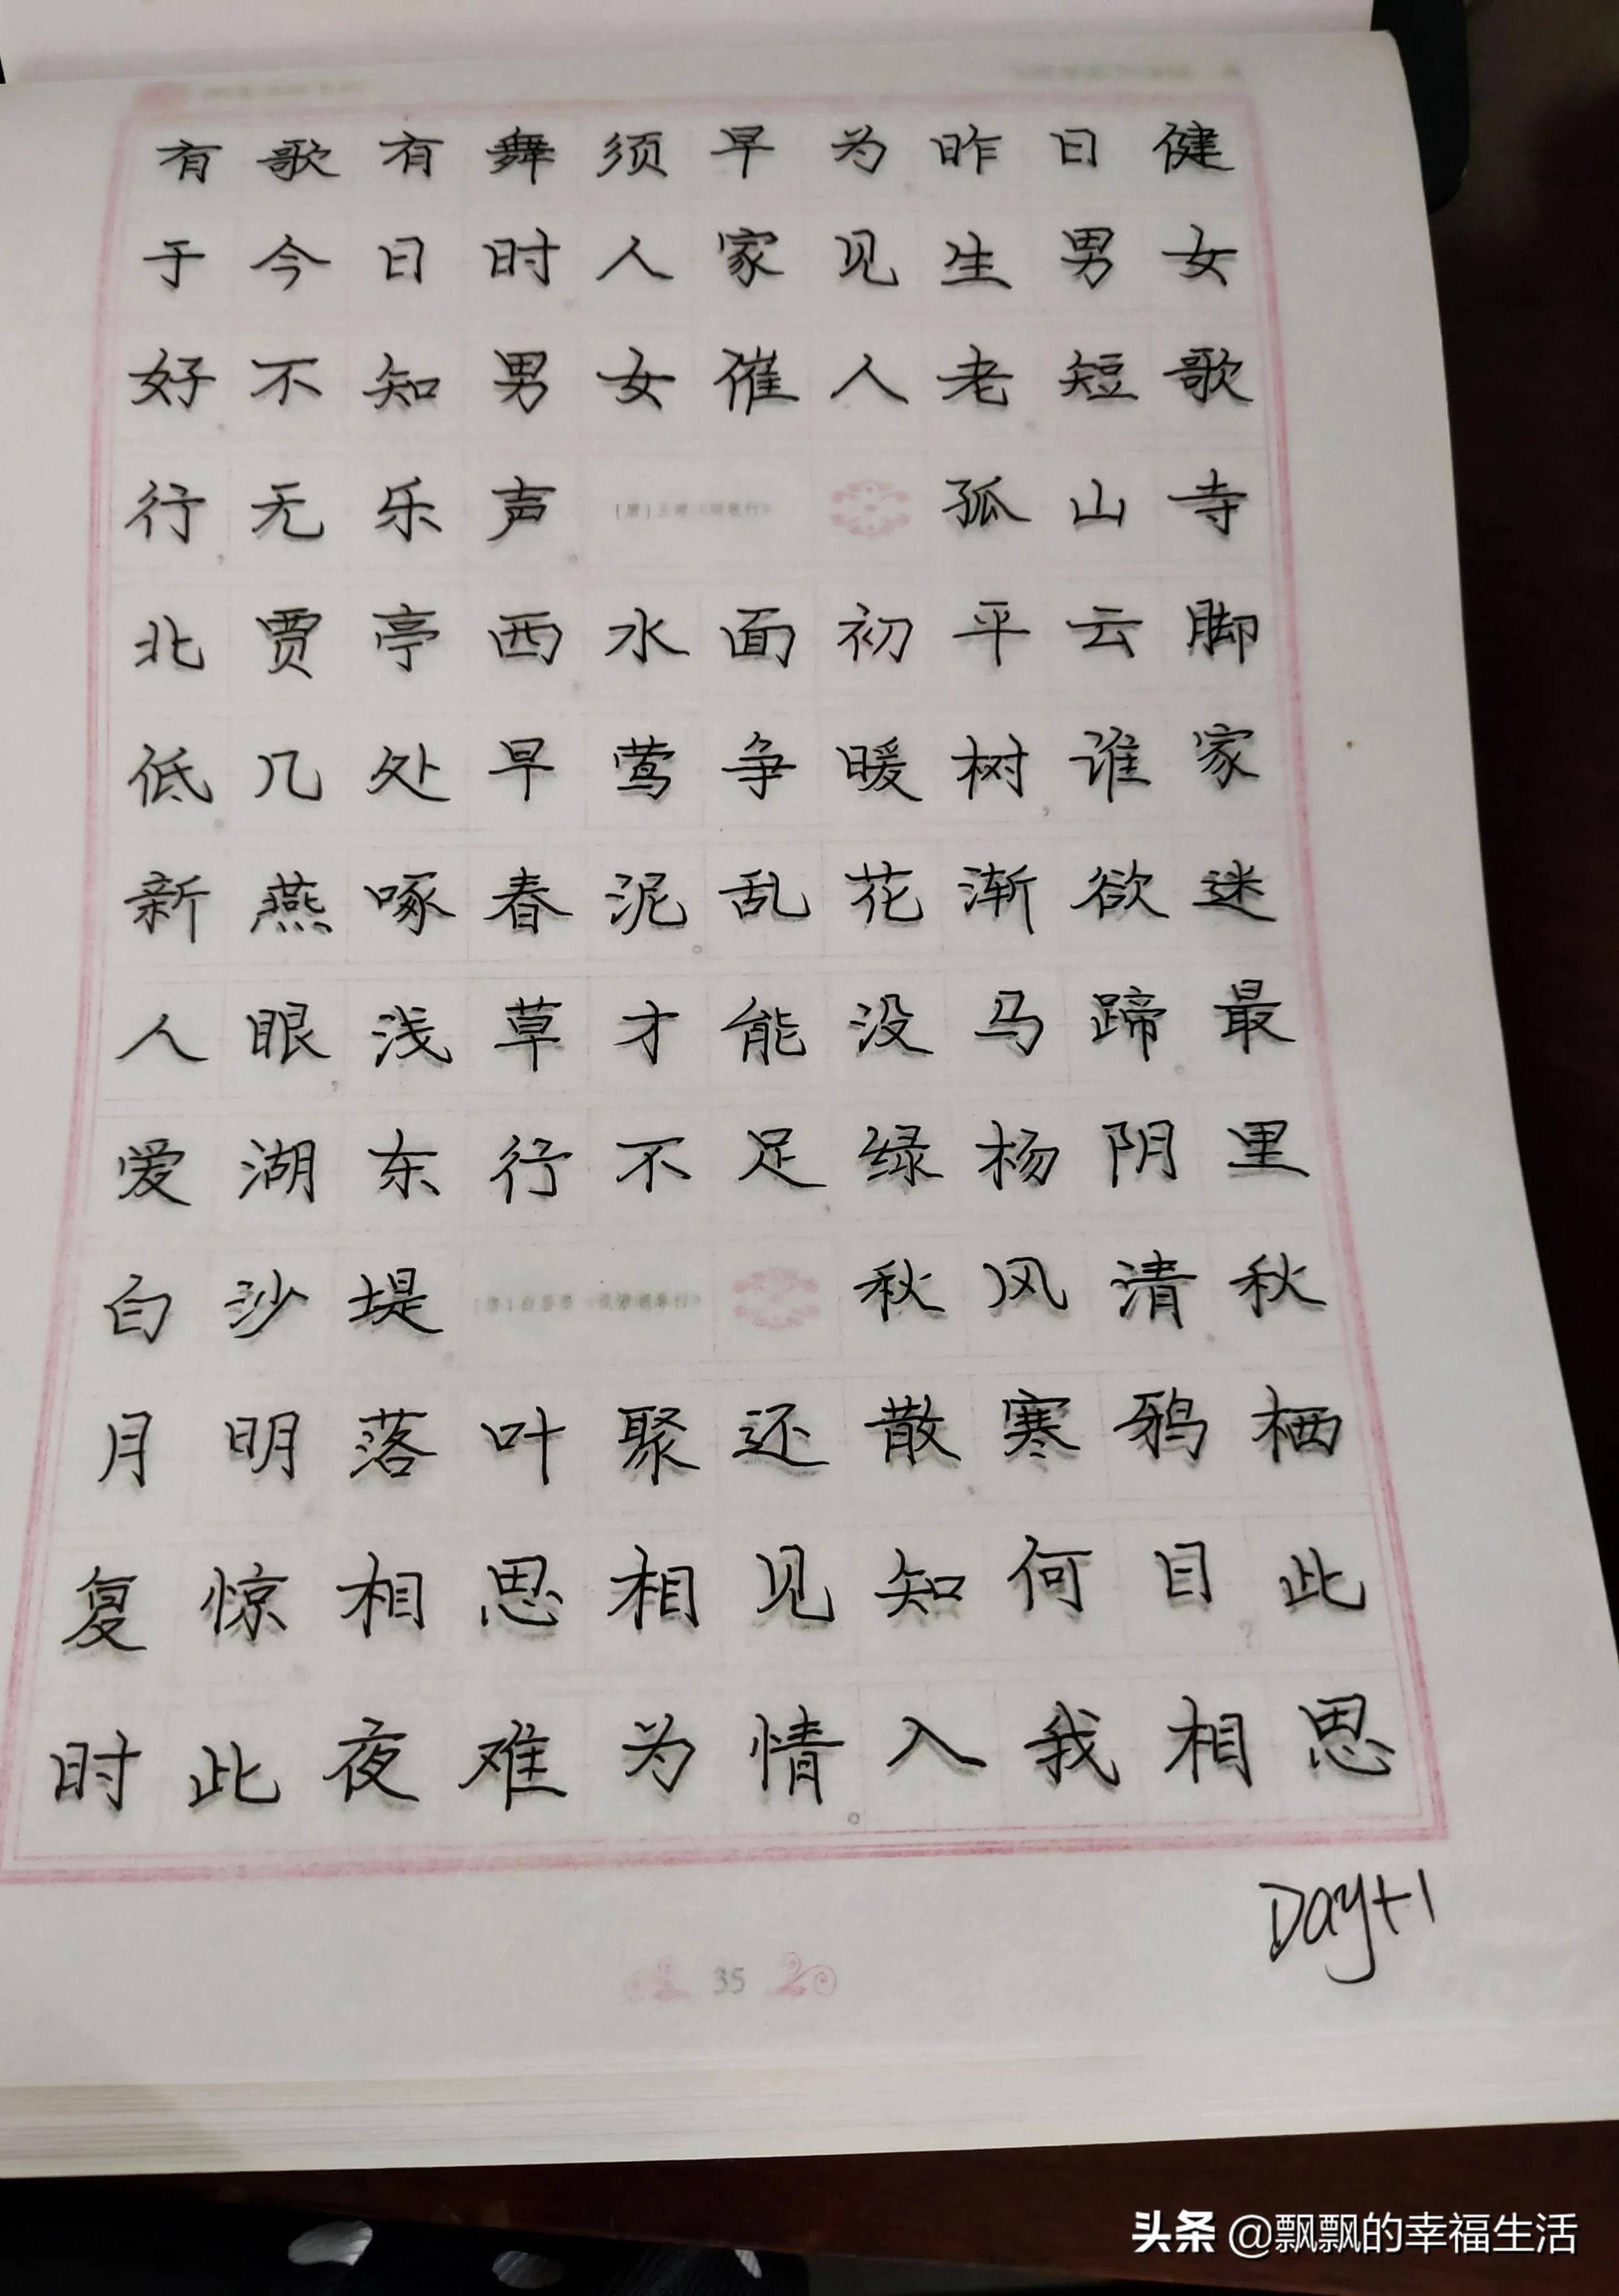 有歌有舞须早为昨日健
于今日时人家见生男女
好不知男女催人老短歌
行无乐声 [唐]王建《短歌行》 孤山寺
北贾亭西水面初平云脚
低几处早莺争暖树谁家
新燕啄春泥乱花渐欲迷
人眼浅草才能没马蹄最
爱湖东行不足绿杨阴里
白沙堤 秋风清秋
月明落叶聚还散寒鸦栖
复惊相思相见知何日此
时此夜难为情。入我相思
Day+1
35
头条 @飘飘的幸福生活